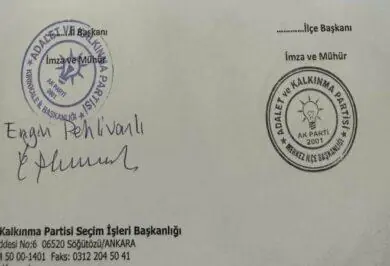 İl Başkanı
............İlçe Başkanı
İmza ve Mühür
İmza ve Mühür
ADALET VE KALKINMA PARTİSİ
AK PARTİ
2001
KIRIKKALE İL BAŞKANLIĞI
ADALET VE KALKINMA PARTİSİ
AK PARTİ
2001
MERKEZ İLÇE BAŞKANLIĞI
Engin Pehlivanlı
Kalkınma Partisi Seçim İşleri Başkanlığı
ddesi No:6 06520 Söğütözü/ANKARA
50 00-1401 Faks: 0312 204 50 41